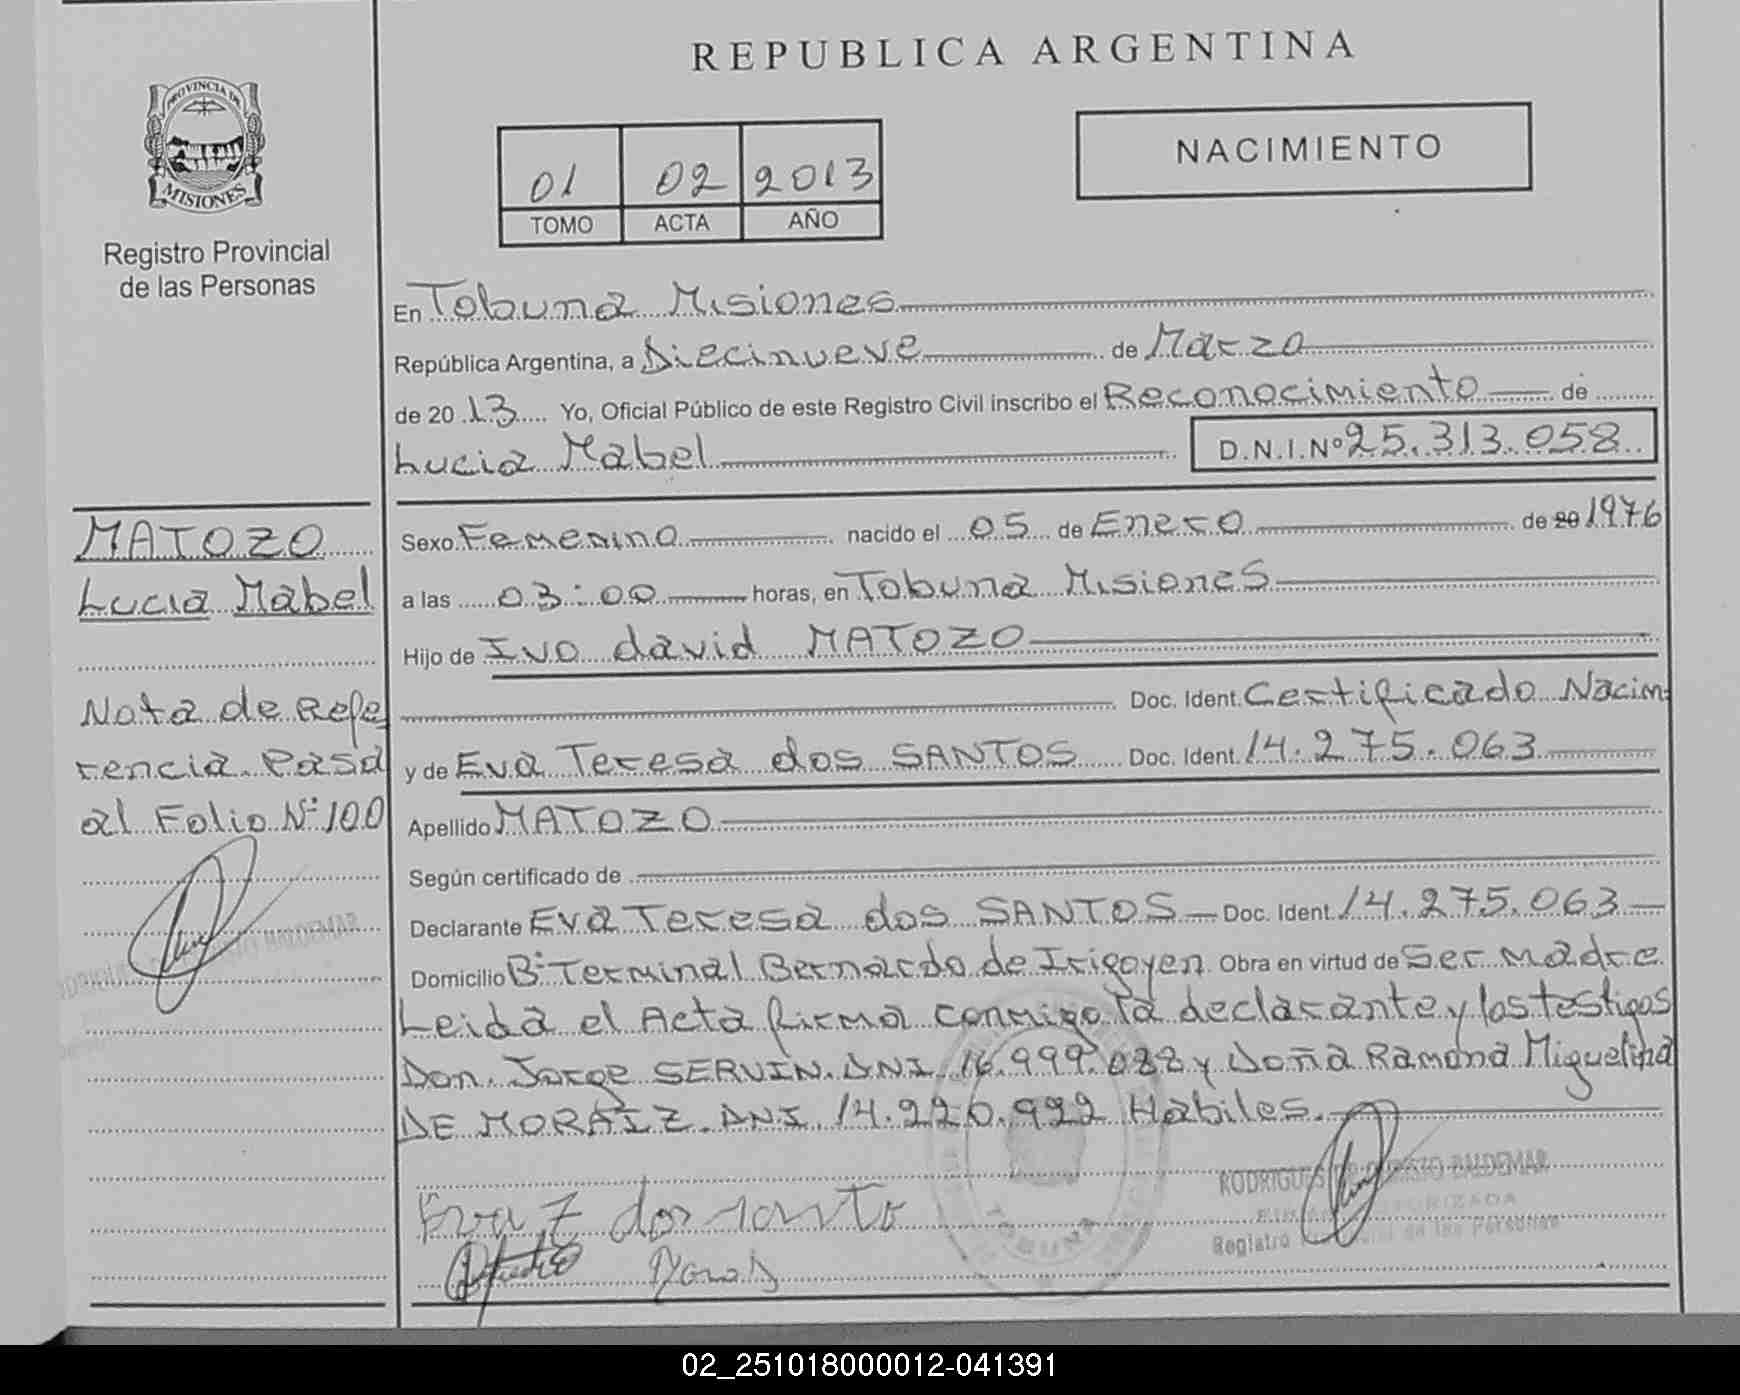 REPUBLICA ARGENTINA
PROVINCIA DE
MISIONES
Registro Provincial
de las Personas
NACIMIENTO
01 02 2013
TOMO ACTA AÑO
En Tobuna Misiones
República Argentina, a Diecinueve de Marzo
de 20 13 Yo, Oficial Público de este Registro Civil inscribo el Reconocimiento de
Lucia Mabel D.N.I.Nº 25.313.058
MATOZO
Lucia Mabel
Nota de Refe
rencia Pasa
al Folio Nº 100
Sexo Femenino nacido el 05 de Enero de 20 1976
a las 03:00 horas, en Tobuna Misiones
Hijo de Ivo david MATOZO
Doc. Ident. Certificado Nacim
y de Eva Teresa dos SANTOS Doc. Ident. 14.275.063
Apellido MATOZO
Según certificado de
Declarante Eva Teresa dos SANTOS Doc. Ident. 14.275.063
Domicilio Bº Terminal Bernardo de Irigoyen Obra en virtud de Ser madre
Leida el Acta firma conmigo la declarante y los testigos
Don Jorge SERVIN DNI 16.999.088 y Doña Ramona Miguelina
DE MORAIZ DNI 14.220.992 Habiles.
Eva T dos santo
RODRIGUES BALDEMAR
AUTORIZADA
Registro de las Personas
TOBUNA
02_251018000012-041391